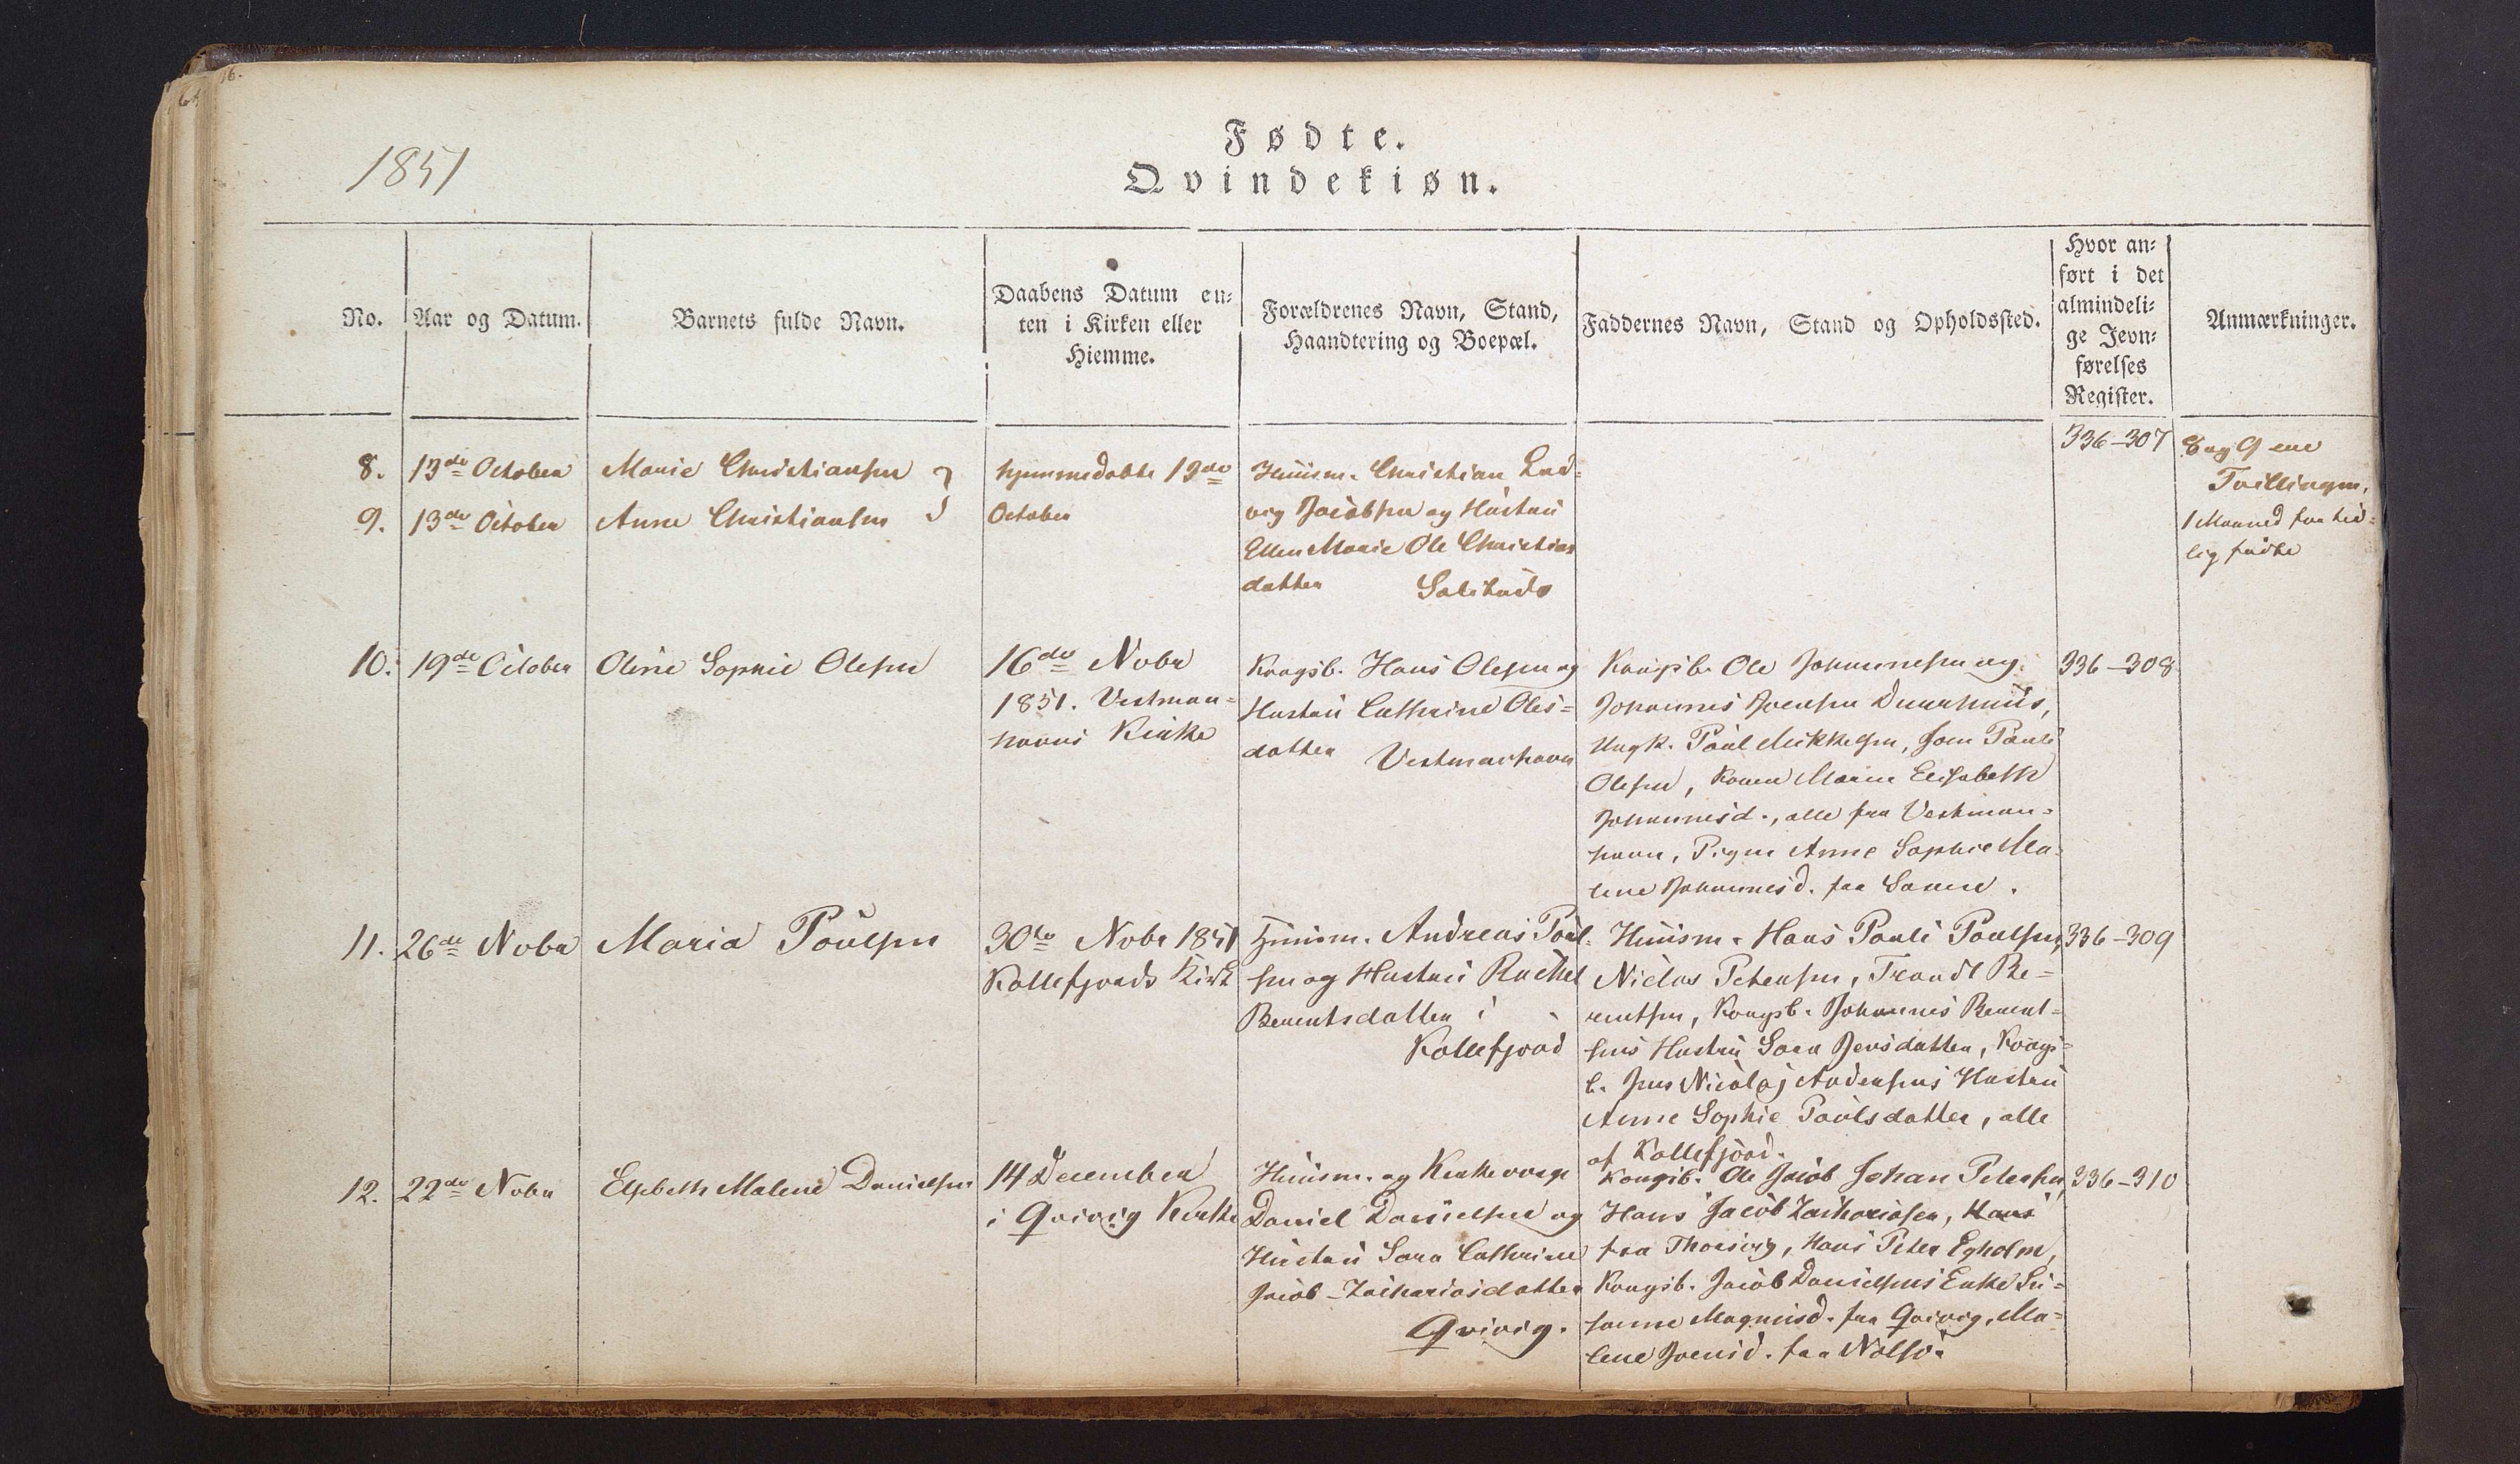 16.
1851
Fødte.
Qvindekiøn.
No.
Aar og Datum.
Barnets fulde Navn.
Daabens Datum en-
ten i Kirken eller
Hiemme.
Forældrenes Navn, Stand,
Haandtering og Boepæl.
Faddernes Navn, Stand og Opholdssted.
Hvor an-
ført i det
almindeli-
ge Jevn-
førelses
Register.
Anmærkninger.
8. 13de October Marie Christiansen
9. 13de October Anne Christiansen
hjemmedøbte 13de
October
Huusm. Christian Lud-
vig Jacobsen og Hustru
Ellen Marie Ole Christians
datter
336-307
8 og 9 ere
Tvillinger,
1 Maaned for tid-
lig fødte
10. 19de October Oline Sophie Olesen
16de Nobr
1851. Vestman-
havns Kirke
Kongsb. Hans Olesen og
Hustru Cathrine Oles-
datter Vestmanhavn
Kongsb. Ole Johannesen og
Johannes Joensen
Ungk. Poul Mikkelsen, Joen Pauli
Olesen, Konen Maren Elisabeth
Johannesd., alle fra Vestman-
havn, Pigen Anne Sophie Ma-
lene Johannesd. fra
336-308
11. 26de Nobr Maria Poulsen
30te Nobr 1851
Kollefjords Kirke
Huusm. Andreas Poul-
sen og Hustru Rachel
Berentsdatter i
Kollefjord
Huusm. Hans Pauli Poulsen,
Niclas Petersen, Trondt Be-
rentsen, Kongsb. Johannes Berent-
sens Hustru Sara Jensdatter, Kongs-
b. Jens Nicolaj Andersens Hustru
Anne Sophie Poulsdatter, alle
af Kollefjord.
336-309
12. 22de Nobr Elsebeth Malene Danielsen
14 December
i Qvivig Kirke
Huusm. og Kirkeværge
Daniel Danielsen og
Hustru Sara Cathrine
Jacob-Zachariasdatter
Qvivig.
Kongsb. Ole Jacob Johan Petersen,
Hans Jacob Zachariasen, Hans
fra Thorsvig, Hans Peter Egholm,
Kongsb. Jacob Danielsens Enke Su-
sanne Magnusd. fra Qvivig, Ma-
lene Joensd. fra Nolsø.
336-310